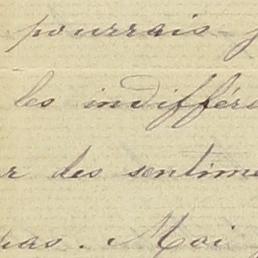 pourrais j
les indiffére
r des sentime
pas. Moi j